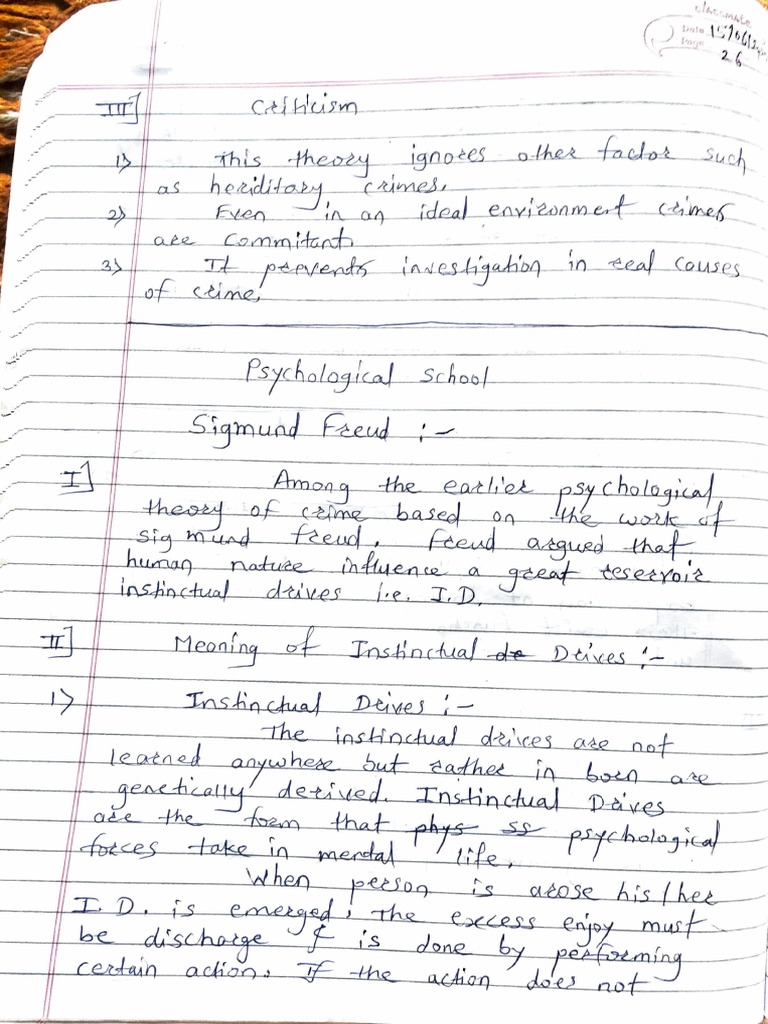 classmate
Date 15/06/
Page 26
III] Criticism
1) This theory ignores other factor such
as heriditary crimes.
2) Even in an ideal environment crimes
are commitant.
3) It prevents investigation in real causes
of crime.
Psychological school
Sigmund Freud :-
I] Among the earlier psychological
theory of crime based on the work of
sigmund freud. Freud argued that
human nature influence a great reservoir
instinctual drives i.e. I.D.
II] Meaning of Instinctual de Drives :-
1) Instinctual Drives :-
The instinctual drices are not
learned anywhere but rather in born are
genetically derived. Instinctual Drives
are the form that phys ss psychological
forces take in mental life.
When person is arose his/her
I.D. is emerged, the excess enjoy must
be discharge & is done by performing
certain action. If the action does not